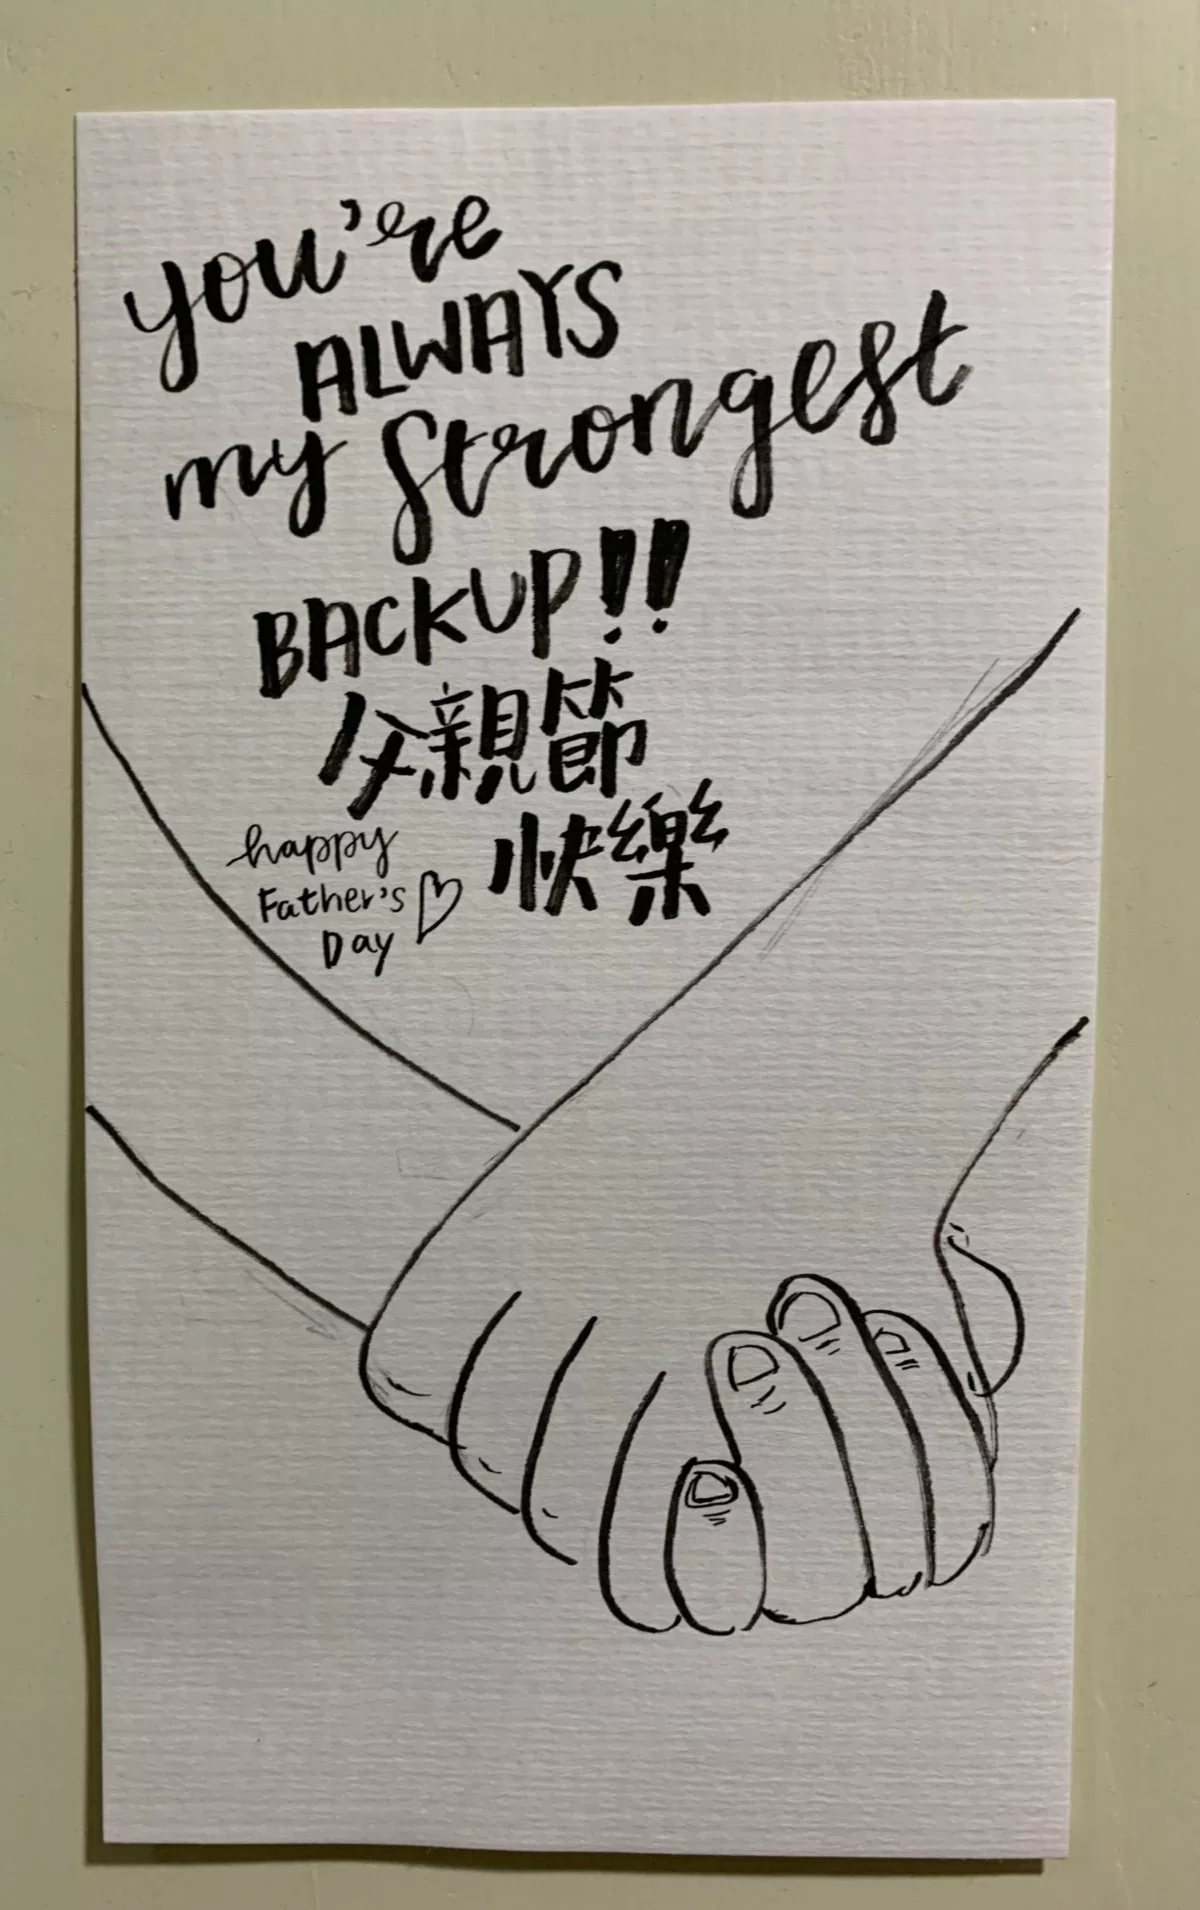 you're
ALWAYS
my strongest
BACKUP!!
父親節
快樂
happy
Father's
Day